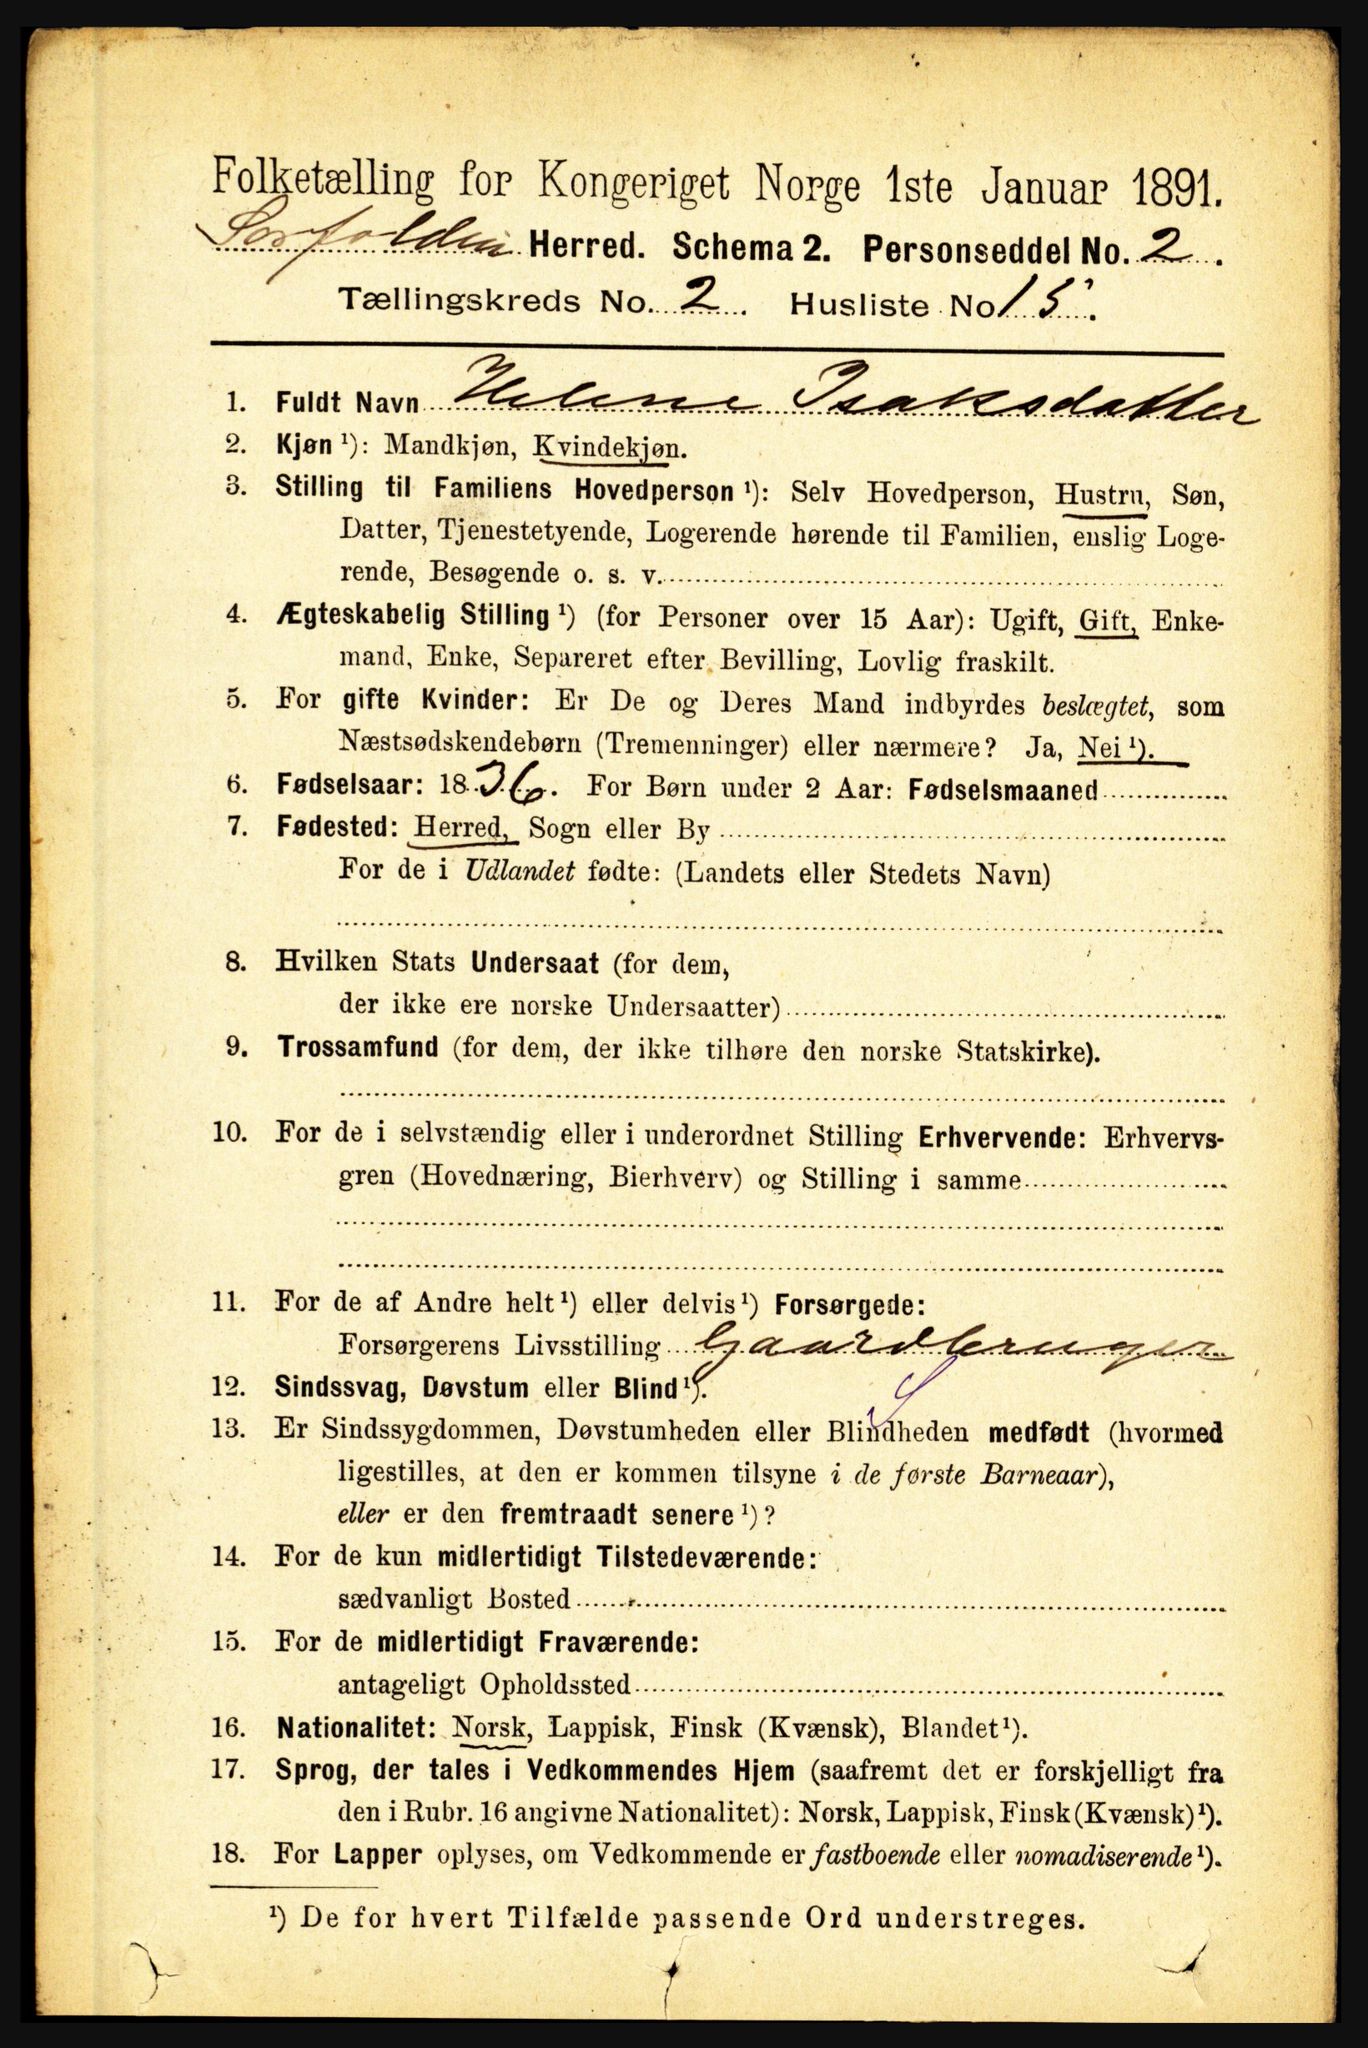 Folketælling for Kongeriget Norge 1ste Januar 1891.
Sørfolden Herred. Schema 2. Personseddel No. 2.
Tællingskreds No. 2. Husliste No 15.
1. Fuldt Navn Helene Isaksdatter
2. Kjøn ¹): Mandkjøn, Kvindekjøn.
3. Stilling til Familiens Hovedperson ¹): Selv Hovedperson, Hustru, Søn,
Datter, Tjenestetyende, Logerende hørende til Familien, enslig Loge-
rende, Besøgende o. s. v.
4. Ægteskabelig Stilling ¹) (for Personer over 15 Aar): Ugift, Gift, Enke-
mand, Enke, Separeret efter Bevilling, Lovlig fraskilt.
5. For gifte Kvinder: Er De og Deres Mand indbyrdes beslægtet, som
Næstsødskendebørn (Tremenninger) eller nærmere? Ja, Nei ¹).
6. Fødselsaar: 1836. For Børn under 2 Aar: Fødselsmaaned
7. Fødested: Herred, Sogn eller By
For de i Udlandet fødte: (Landets eller Stedets Navn)
8. Hvilken Stats Undersaat (for dem,
der ikke ere norske Undersaatter)
9. Trossamfund (for dem, der ikke tilhøre den norske Statskirke).
10. For de i selvstændig eller i underordnet Stilling Erhvervende: Erhvervs-
gren (Hovednæring, Bierhverv) og Stilling i samme
11. For de af Andre helt ¹) eller delvis ¹) Forsørgede:
Forsørgerens Livsstilling Gaardbruger
12. Sindssvag, Døvstum eller Blind ¹).
S
13. Er Sindssygdommen, Døvstumheden eller Blindheden medfødt (hvormed
ligestilles, at den er kommen tilsyne i de første Barneaar),
eller er den fremtraadt senere ¹)?
14. For de kun midlertidigt Tilstedeværende:
sædvanligt Bosted
15. For de midlertidigt Fraværende:
antageligt Opholdssted
16. Nationalitet: Norsk, Lappisk, Finsk (Kvænsk), Blandet ¹).
17. Sprog, der tales i Vedkommendes Hjem (saafremt det er forskjelligt fra
den i Rubr. 16 angivne Nationalitet): Norsk, Lappisk, Finsk (Kvænsk) ¹).
18. For Lapper oplyses, om Vedkommende er fastboende eller nomadiserende ¹).
¹) De for hvert Tilfælde passende Ord understreges.